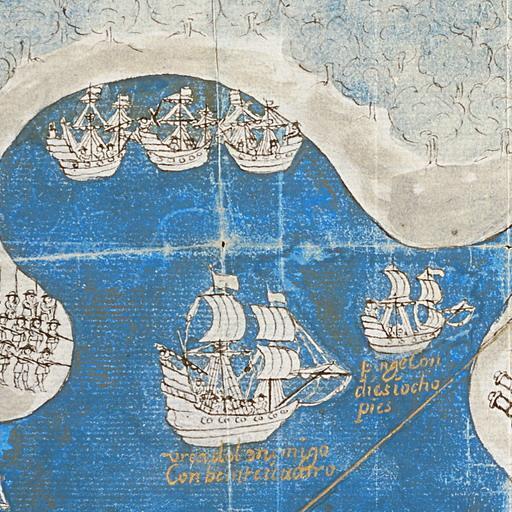 pinge Con
diesiocho
pies
urca del enemigo
Con beinteicuatro